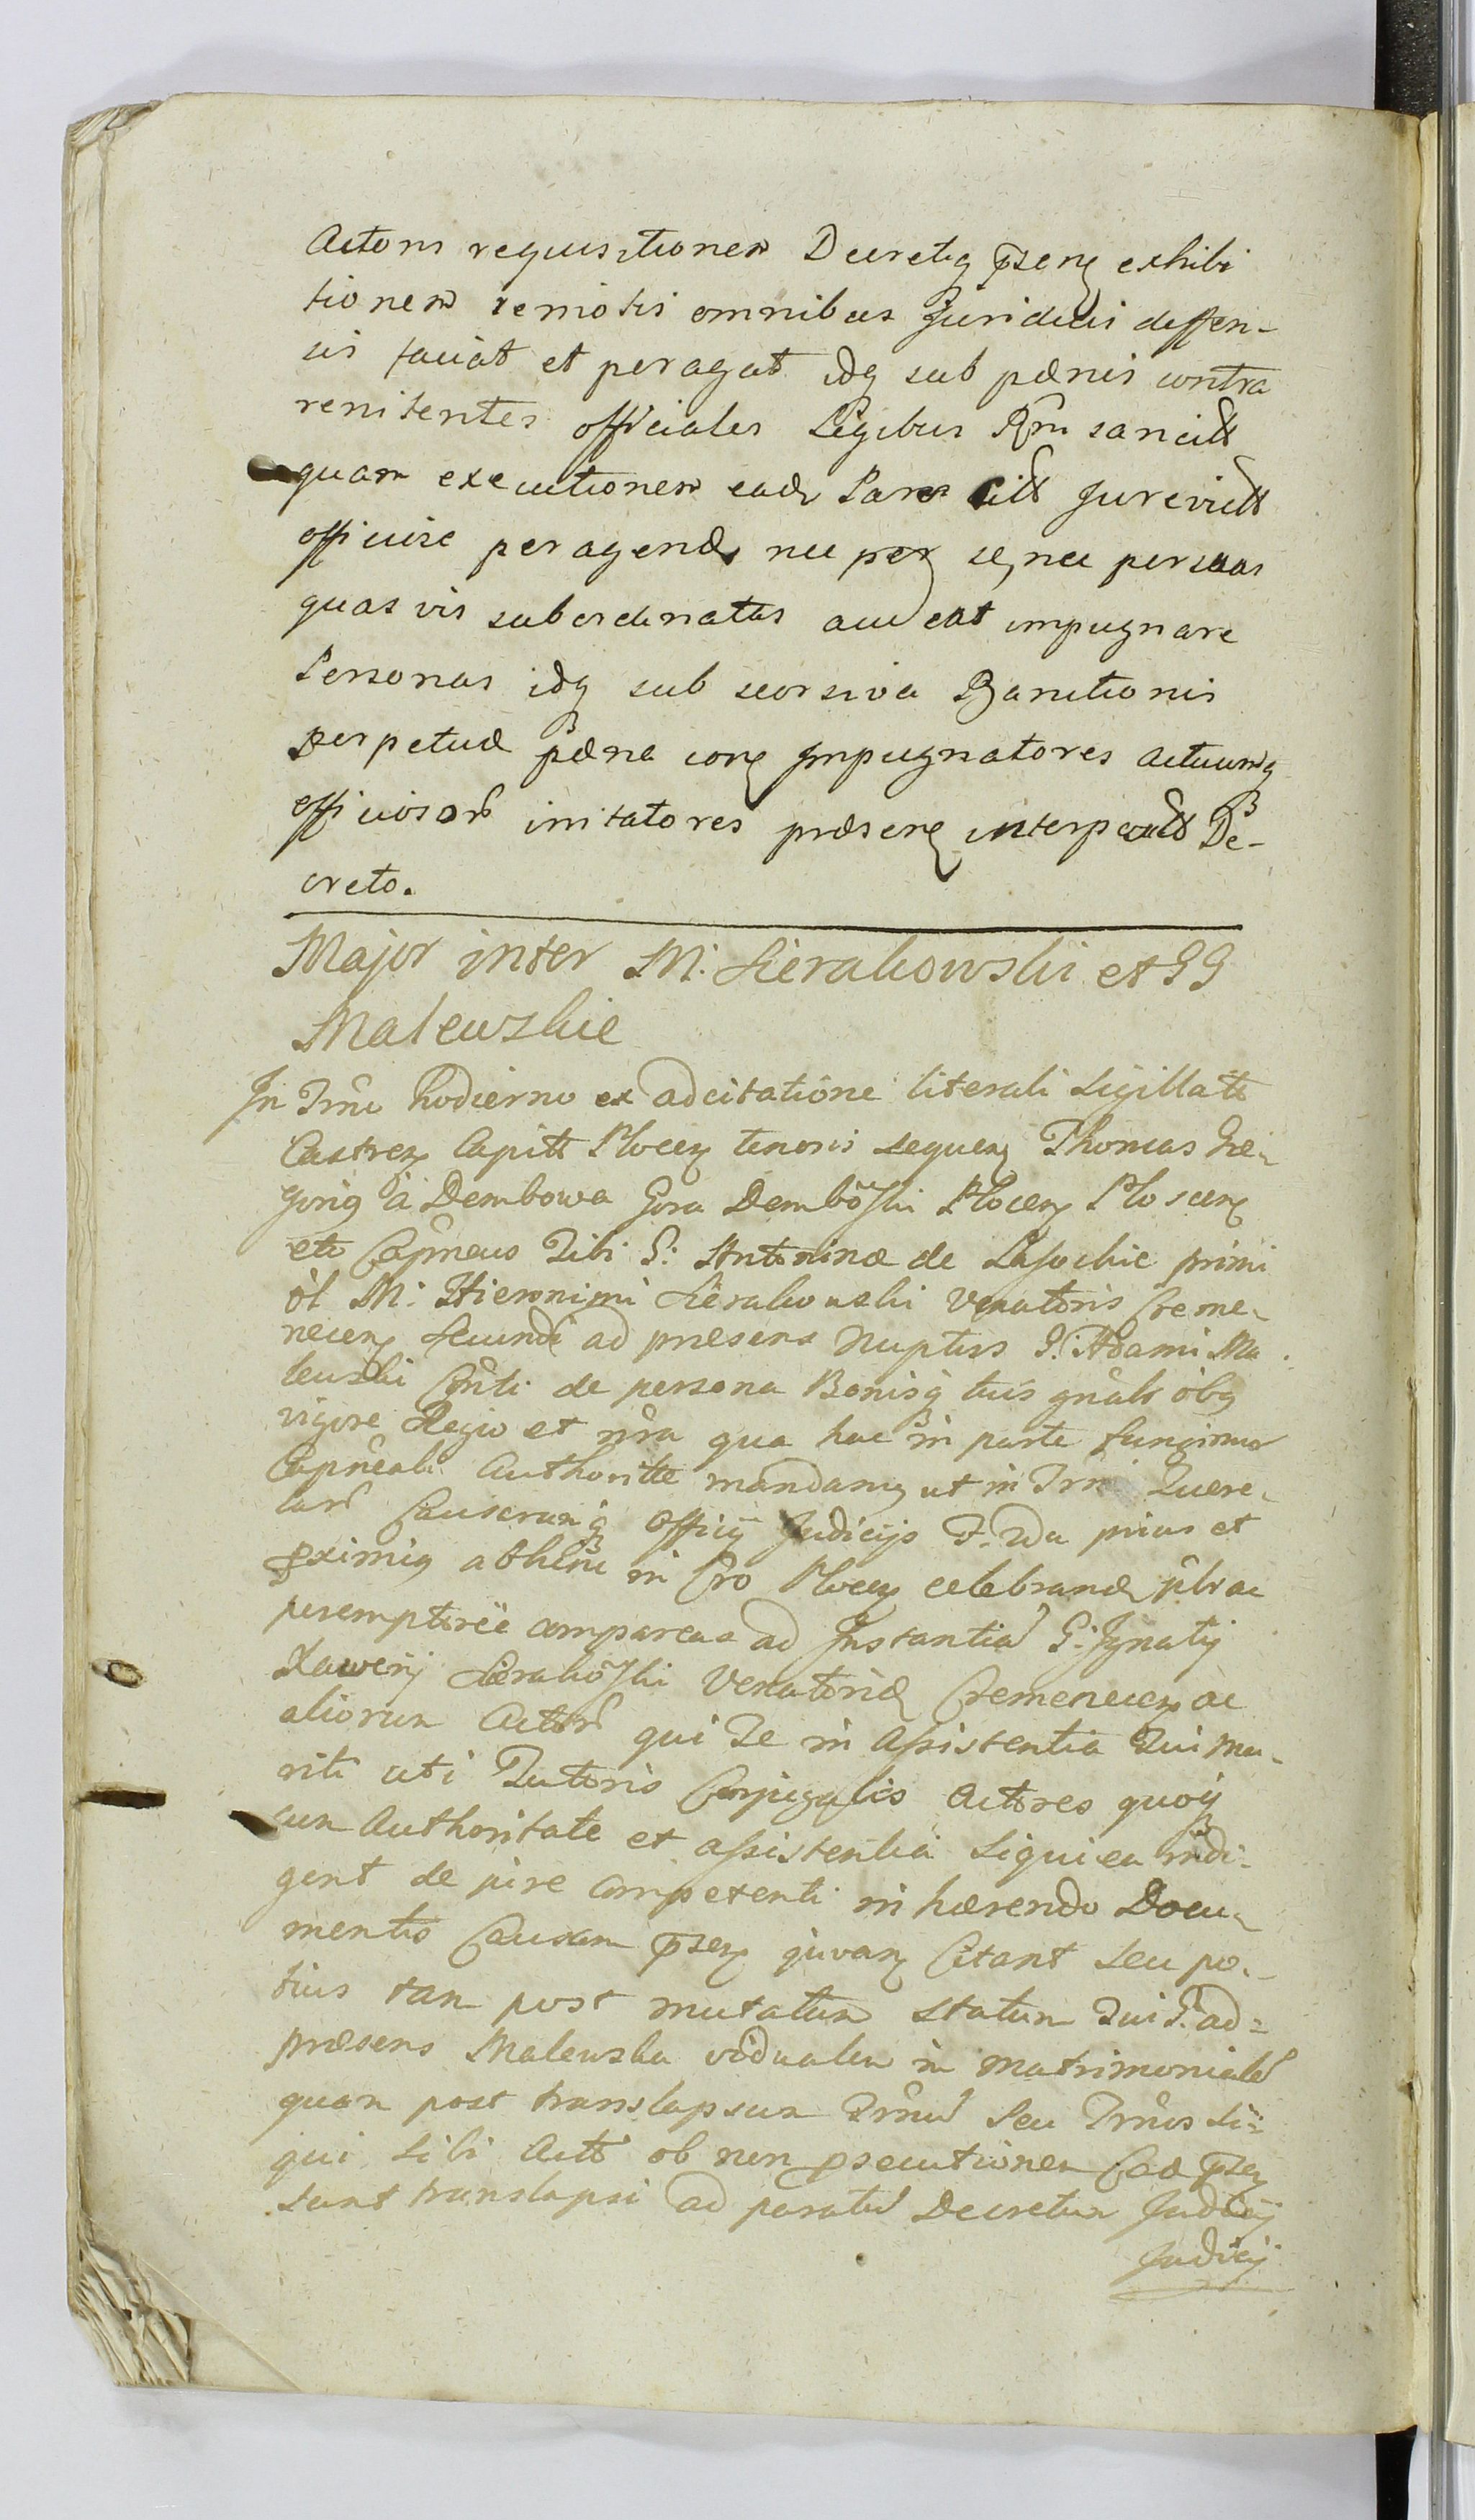 Actoris requisitionem Decretiq p̄senɉ exhibi
tionem remotis omnibus Juridicis deffen-
sis faciat et peragat idq sub pænis contra
renitentes officiales Legibus Rgni sancitt
quam executionem eadem Pars citt Jurevictt
officiose peragendæ nec per se, nec per suas
quasvis subordinatas audeat impugnare
Personas idq sub scorsiva Banitionis
perpetuæ pæna con Impugnatores actuumq
officiosor̃ irritatores præsenɉ interpondt De-
creto.
Major inter M. Sierakowski et GG
Malewskie
In Tr̃no hodierno ex adcitatione literali Sigillatt
Castreɉ Capitt Plocenɉ tenoris sequenɉ Thomas Gre-
gorig à Dembowa Gora Dembõski Plocenɉ Plo
etc Cap̃neus Tibi G: Antoninæ de Lasockie primi
ol M: Hieronimi Sierakowski Venatoris Creme-
necenɉ Secundi ad præsens Nuptiss G: Adami Ma
lewski Cõnti de persona Bonisq tuis gñalr obq
vigore Regio et nr̃a qua hac in parte fungimur
Capñeali Authoritte mandamɉ ut in Tr̃ni Quere-
lar̃ Causarumq Officij Judicijs F. 2da prius et
pximiq abhinc in Cro Plocenɉ celebrandæ pltr ac
peremptorie compareas ad Instantia G: Ignatij
Xawerij Sierakõski Venatoridæ Cremenecenɉ ac
aliorum Actor̃ qui Te in Assistentia Tui Ma-
riti uti Tutoris Conjugalis Actores quoqɉ
cum Authoritate et assistentia Siqui ea indi-
gent de jure competenti inhærendo Docu-
mentis Causam p̄senɉ juvanɉ Citant Seu po-
tius tam post mutatum Statum Tui G. ad=
præsens Malewska vidualem in matrimonialẽ
quam post translapsum Tr̃num Seu Tr̃nos Si=
qui Sibi Actt ob non psecutionem Cæ p̄senɉ
Sunt translapsi ad paratũ Decretum Judicij
Judicij